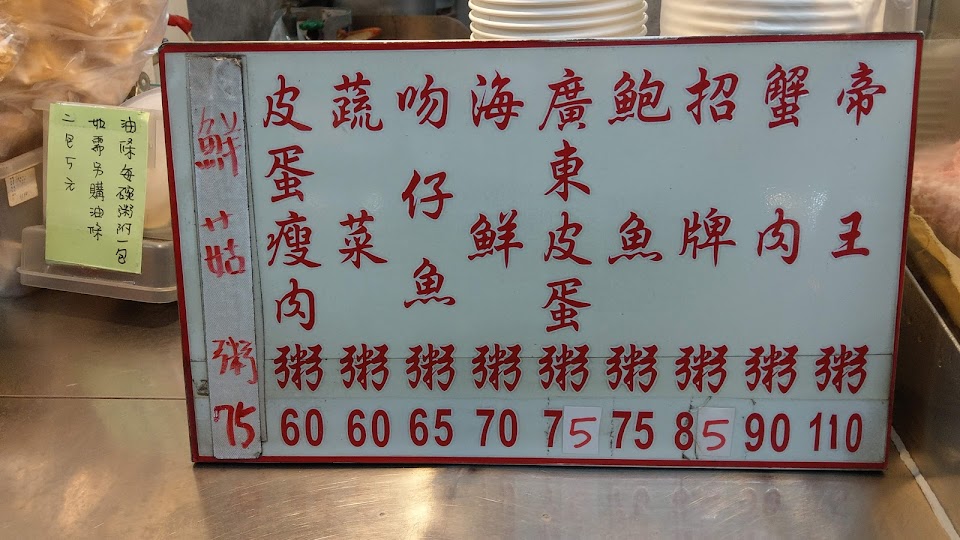 帝王粥 110
蟹肉粥 90
招牌粥 85
鮑魚粥 75
廣東皮蛋粥 75
海鮮粥 70
吻仔魚粥 65
蔬菜粥 60
皮蛋瘦肉粥 60
鮮菇粥 75
油條每碗粥附一包
如需另購油條
二包5元